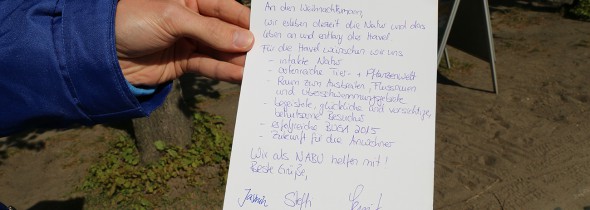 An den Weihnachtsmann,
wir erleben derzeit die Natur und das
Leben an und entlang der Havel
Für die Havel wünschen wir uns
- intakte Natur
- artenreiche Tier- + Pflanzenwelt
- Raum zum Ausbreiten, Flussraum
und Überschwemmungsgebiete
- begeisterte, glückliche und vorsichtige,
behutsame Besucher
- erfolgreiche BUGA 2015
- Zukunft für die Anwohner
Wir als NABU helfen mit!
Beste Grüße,
Jasmin Steffi